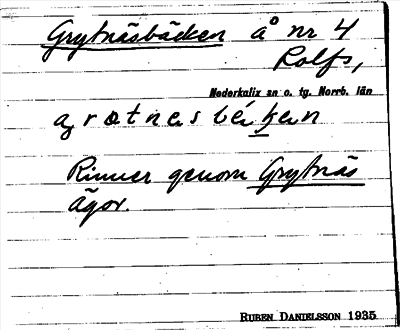 Grytnäsbäcken å nr 4
Rolfs,
Nederkalix sn o. tg. Norrb. län
Rinner genom Grytnäs
ägor.
RUBEN DANIELSSON 1935